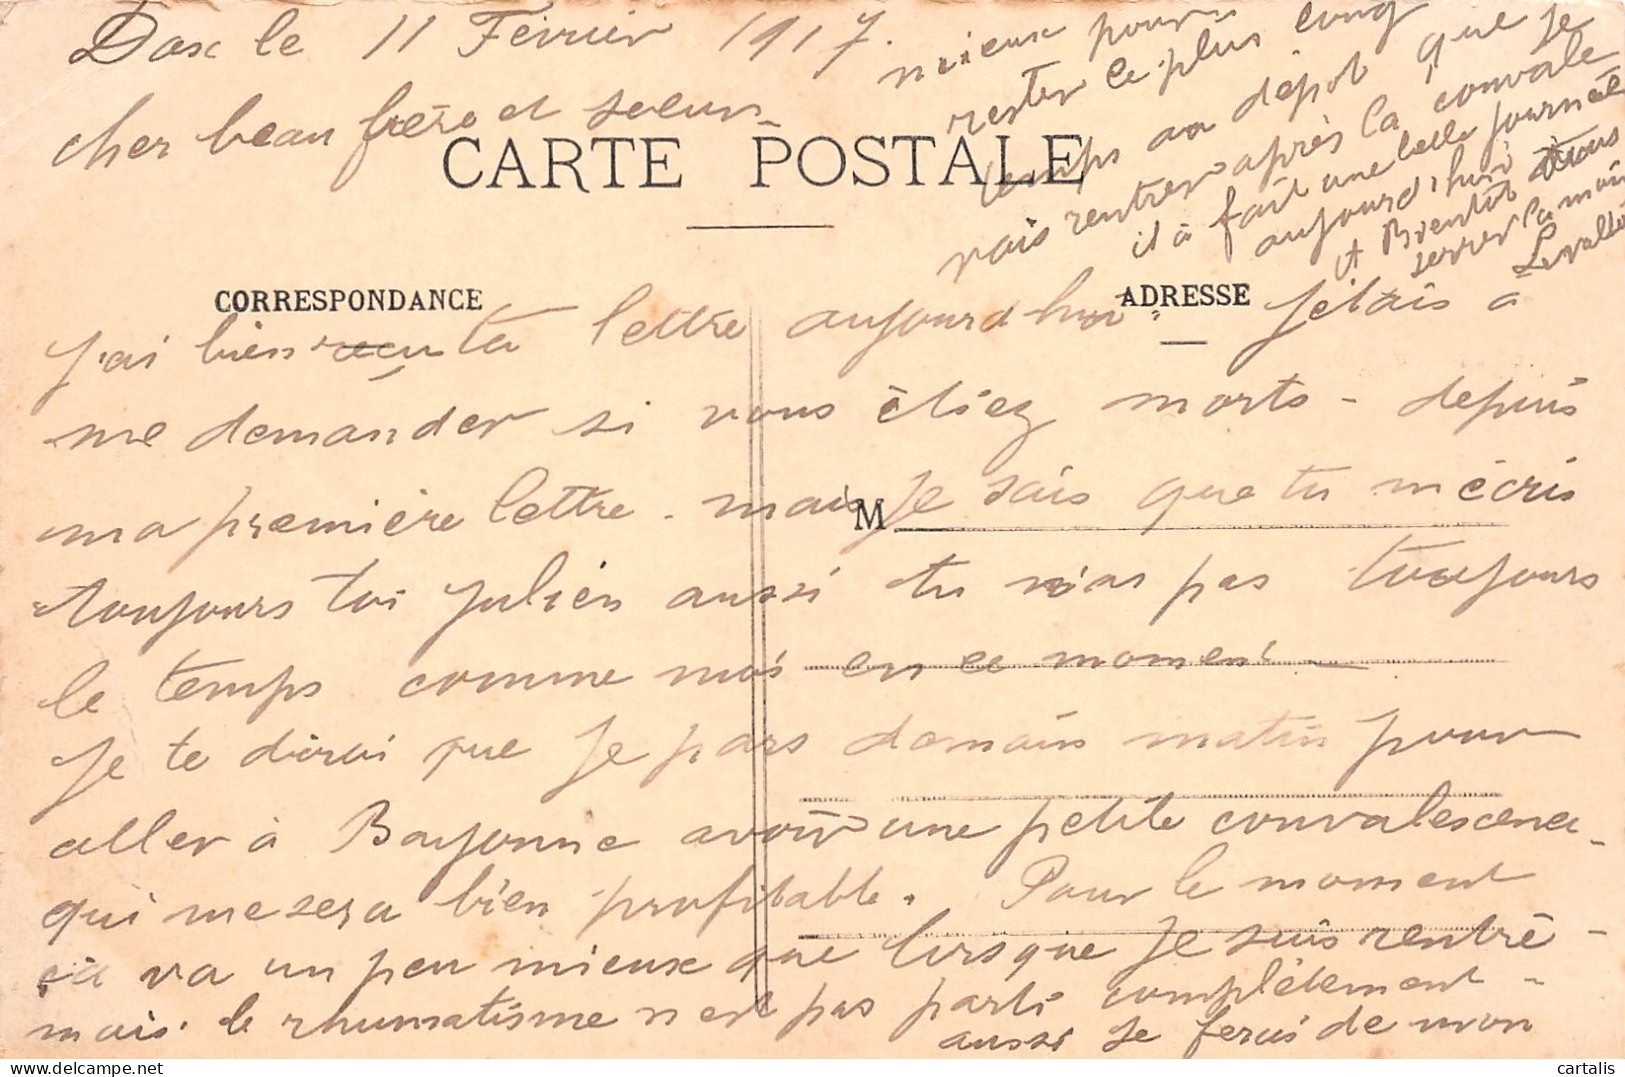 Dax le 11 Février 1917.
cher beau frère et soeur
CARTE POSTALE
CORRESPONDANCE
ADRESSE
M
j'ai bien reçu ta lettre aujourd hui. Jetais a
me demander si vous ètiez morts - depuis
ma première lettre. mais je sais que tu mécris
toujours toi Julien aussi tu n'as pas toujours
le temps comme moi en ce moment
Je te dirai que je pars demain matin pour
aller à Bayonne avoir une petite convalescence
qui me sera bien profitable. Pour le moment
ça va un peu mieux que lorsque je suis rentré -
mais le rhumatisme n'est pas parti complètement -
aussi je ferais de mon
mieux pour
rester le plus long
temps au dépot que je
vais rentrer après la convale
il à fait une belle journée
aujourd'hui
A Bientôt vous
serrer la main